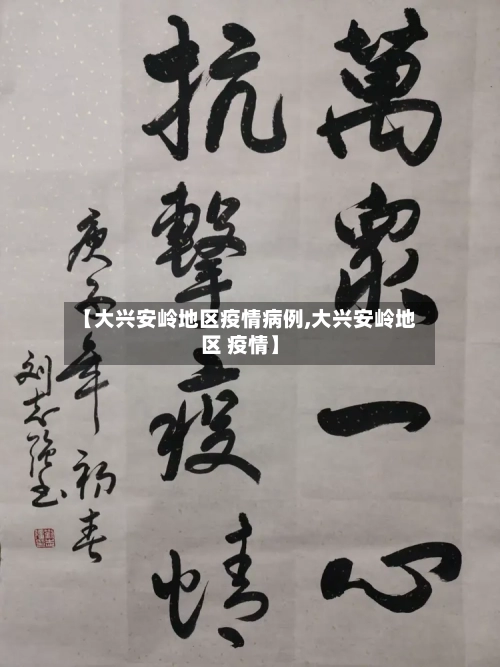 萬眾一心
抗擊疫情
庚子年初春
刘志强书
【大兴安岭地区疫情病例,大兴安岭地
区 疫情】